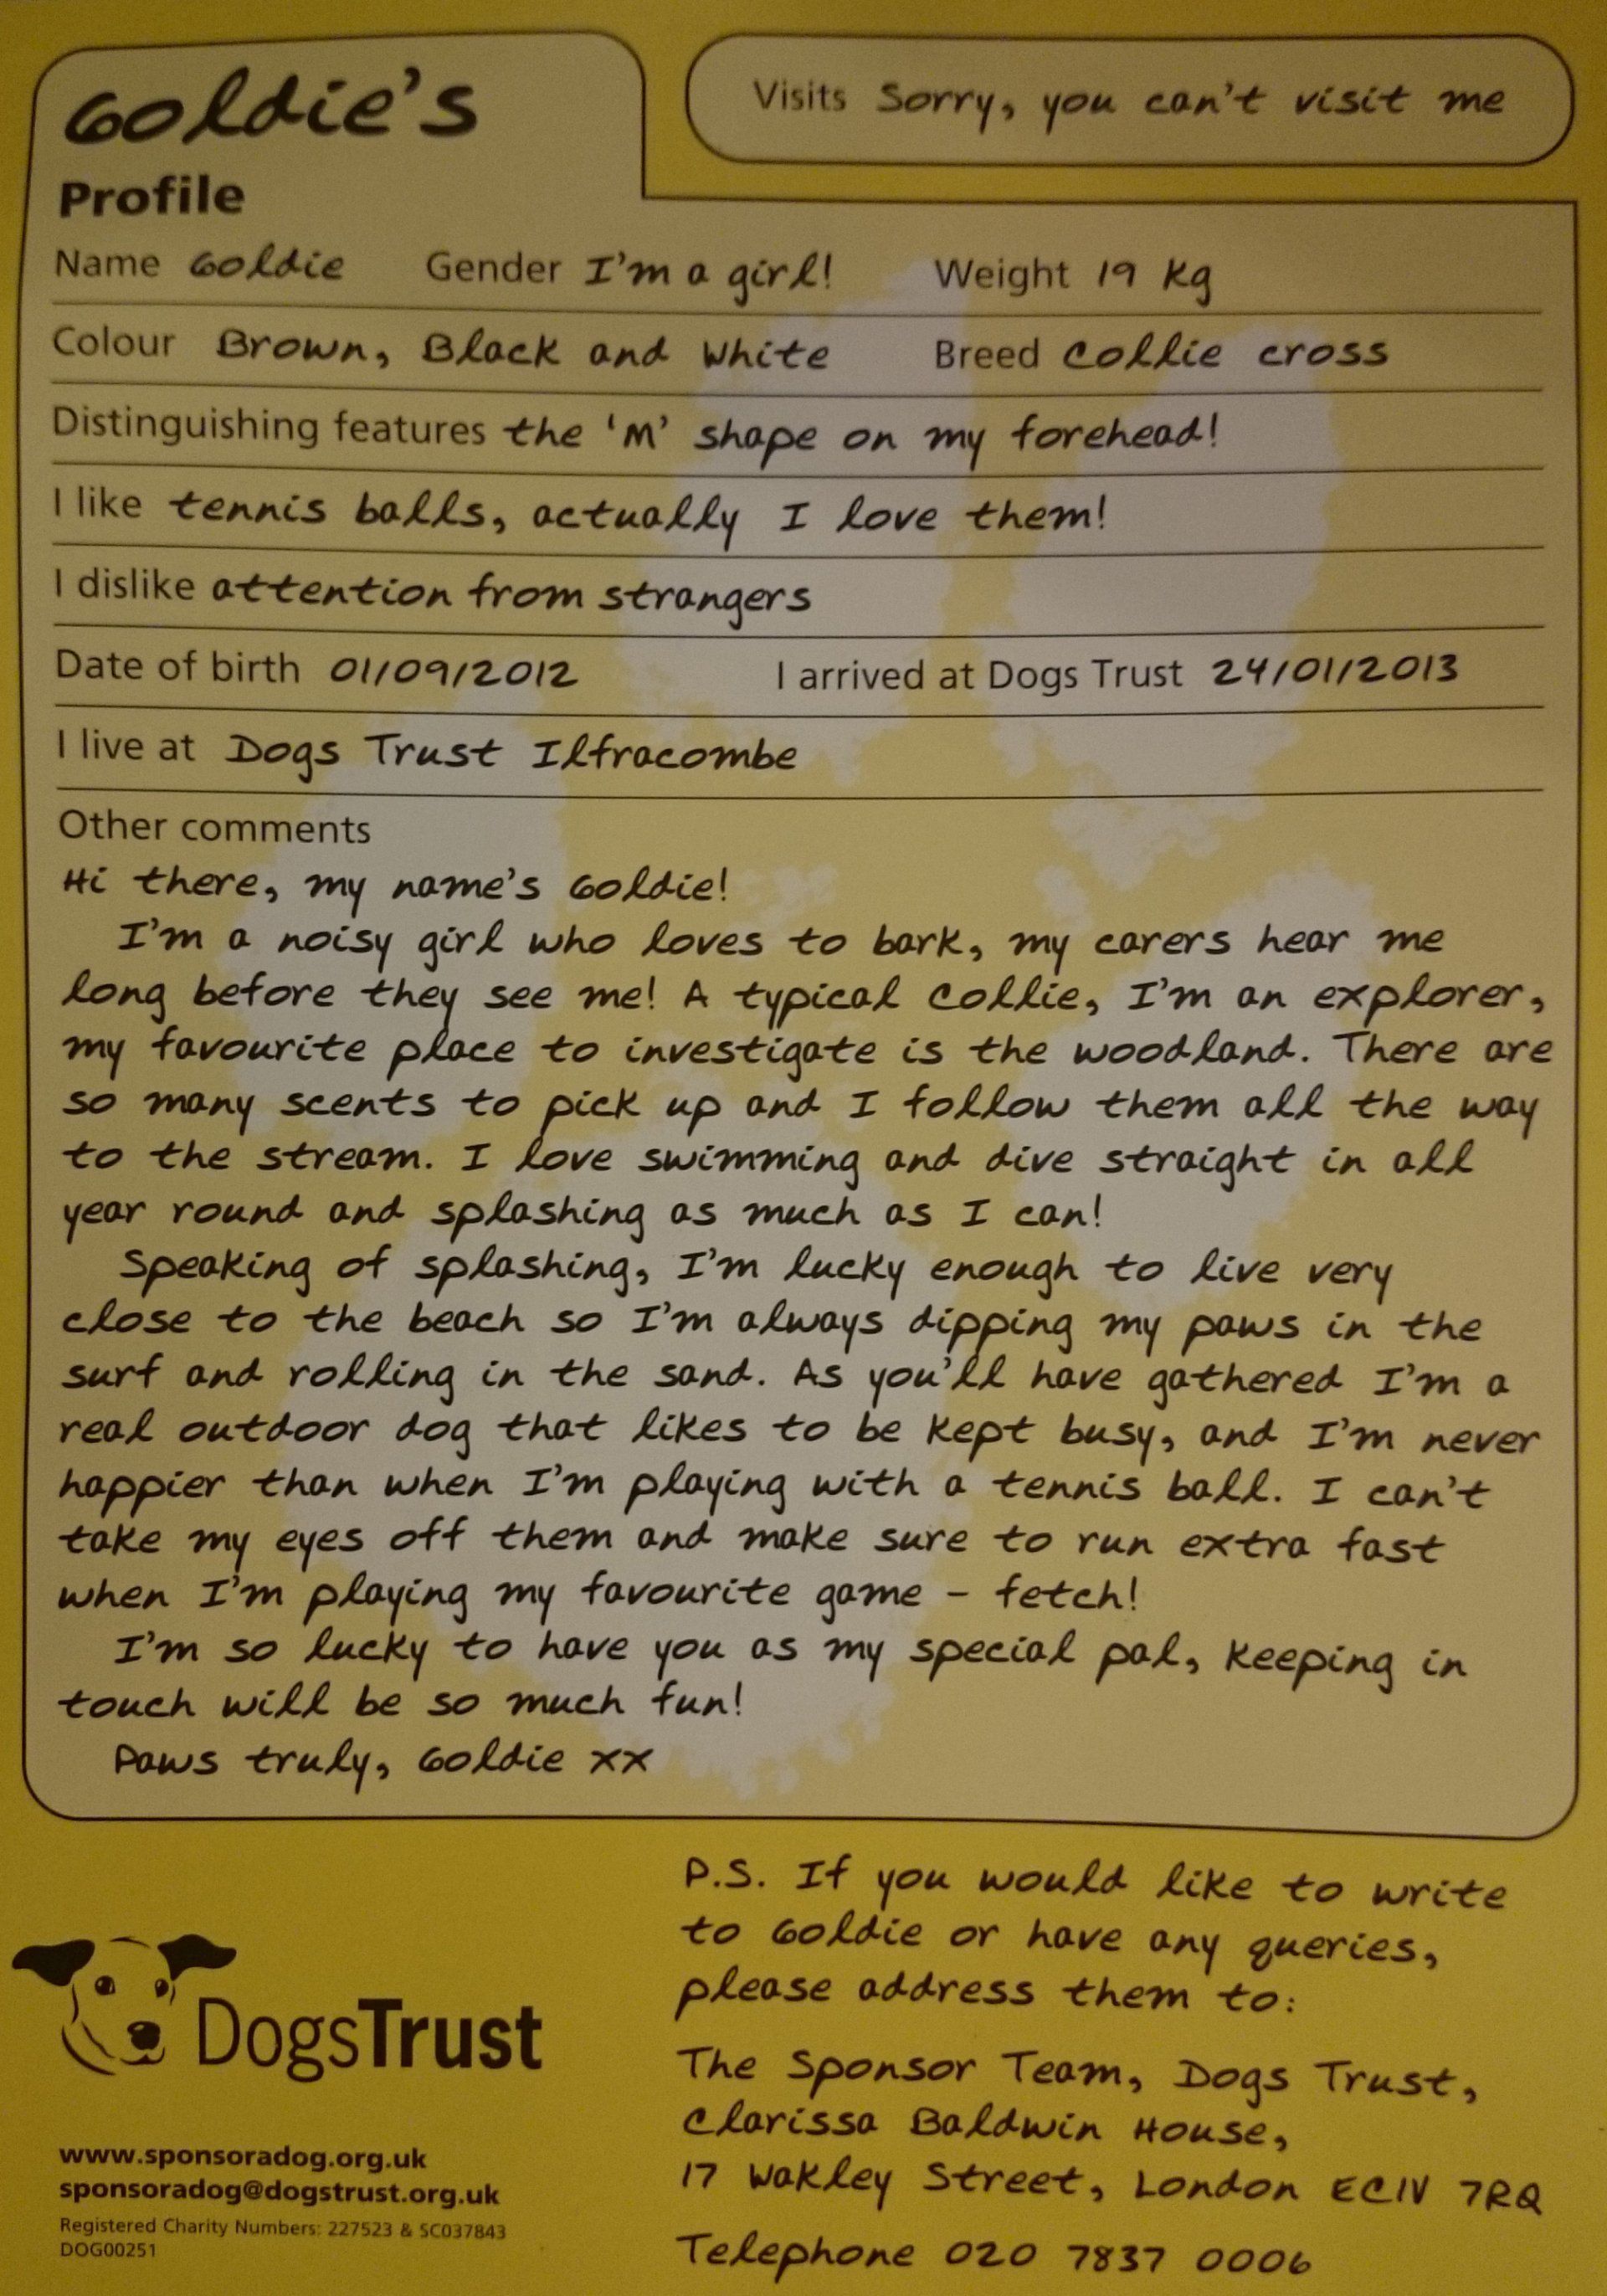 Goldie's
Profile
Visits Sorry, you can't visit me
Name Goldie Gender I'm a girl! Weight 19 kg
Colour Brown, Black and White Breed Collie cross
Distinguishing features the 'M' shape on my forehead!
I like tennis balls, actually I love them!
I dislike attention from strangers
Date of birth 01/09/2012 I arrived at Dogs Trust 24/01/2013
I live at Dogs Trust Ilfracombe
Other comments
Hi there, my name's Goldie!
I'm a noisy girl who loves to bark, my carers hear me
long before they see me! A typical Collie, I'm an explorer,
my favourite place to investigate is the woodland. There are
so many scents to pick up and I follow them all the way
to the stream. I love swimming and dive straight in all
year round and splashing as much as I can!
Speaking of splashing, I'm lucky enough to live very
close to the beach so I'm always dipping my paws in the
surf and rolling in the sand. As you'll have gathered I'm a
real outdoor dog that likes to be kept busy, and I'm never
happier than when I'm playing with a tennis ball. I can't
take my eyes off them and make sure to run extra fast
when I'm playing my favourite game - fetch!
I'm so lucky to have you as my special pal, keeping in
touch will be so much fun!
Paws truly, Goldie xx
DogsTrust
www.sponsoradog.org.uk
sponsoradog@dogstrust.org.uk
Registered Charity Numbers: 227523 & SC037843
DOG00251
P.S. If you would like to write
to Goldie or have any queries,
please address them to:
The Sponsor Team, Dogs Trust,
Clarissa Baldwin House,
17 Wakley Street, London EC1V 7RQ
Telephone 020 7837 0006